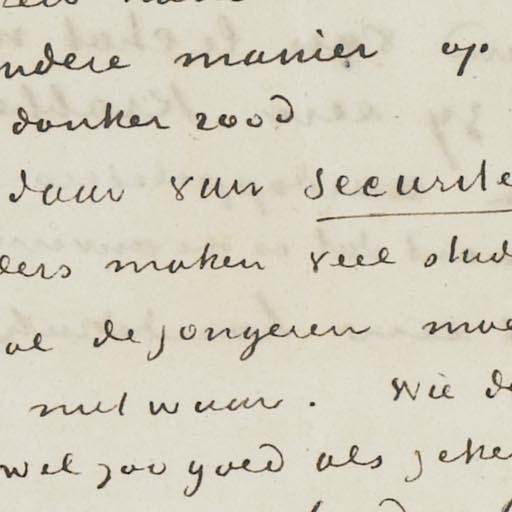 ndere manier op
donker rood
daar van securite
ders maken veel stud
al de jongeren moe
niet waar. Wie d
wel zoo goed als zeke